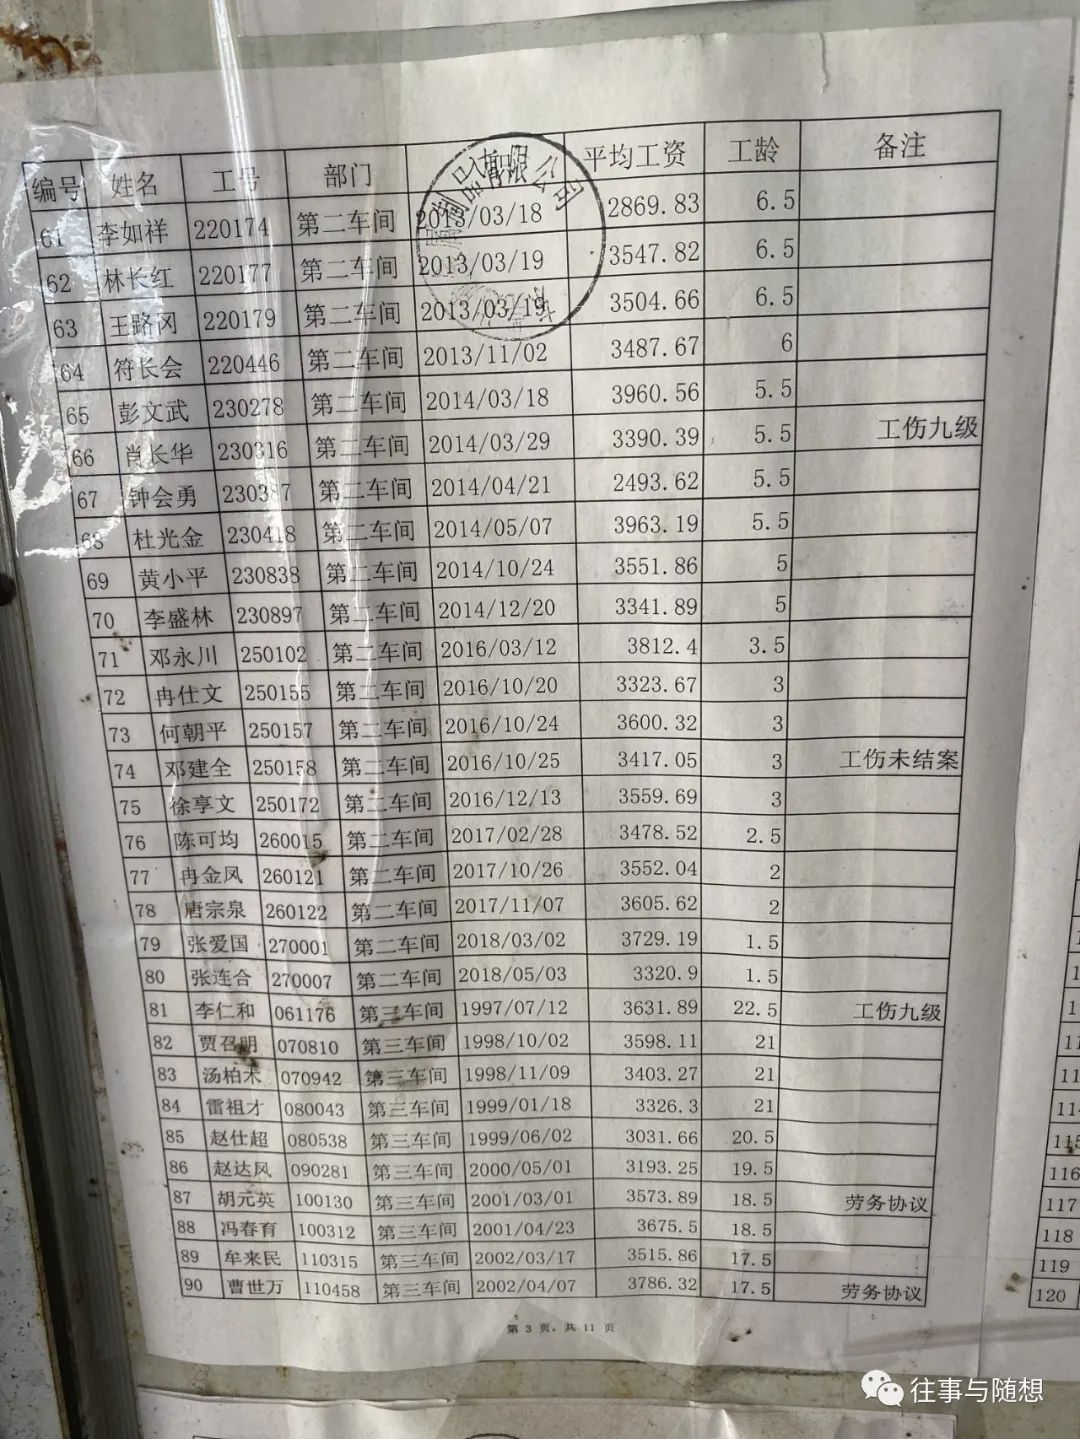 编号 姓名 工号 部门 平均工资 工龄 备注
品有限公司
61 李如祥 220174 第二车间 2013/03/18 2869.83 6.5
62 林长红 220177 第二车间 2013/03/19 3547.82 6.5
63 王路冈 220179 第二车间 2013/03/19 3504.66 6.5
64 符长会 220446 第二车间 2013/11/02 3487.67 6
65 彭文武 230278 第二车间 2014/03/18 3960.56 5.5
66 肖长华 230316 第二车间 2014/03/29 3390.39 5.5 工伤九级
67 钟会勇 230387 第二车间 2014/04/21 2493.62 5.5
68 杜光金 230418 第二车间 2014/05/07 3963.19 5.5
69 黄小平 230838 第二车间 2014/10/24 3551.86 5
70 李盛林 230897 第二车间 2014/12/20 3341.89 5
71 邓永川 250102 第二车间 2016/03/12 3812.4 3.5
72 冉仕文 250155 第二车间 2016/10/20 3323.67 3
73 何朝平 250157 第二车间 2016/10/24 3600.32 3
74 邓建全 250158 第二车间 2016/10/25 3417.05 3 工伤未结案
75 徐享文 250172 第二车间 2016/12/13 3559.69 3
76 陈可均 260015 第二车间 2017/02/28 3478.52 2.5
77 冉金凤 260121 第二车间 2017/10/26 3552.04 2
78 唐宗泉 260122 第二车间 2017/11/07 3605.62 2
79 张爱国 270001 第二车间 2018/03/02 3729.19 1.5
80 张连合 270007 第二车间 2018/05/03 3320.9 1.5
81 李仁和 061176 第三车间 1997/07/12 3631.89 22.5 工伤九级
82 贾召明 070810 第三车间 1998/10/02 3598.11 21
83 汤柏木 070942 第三车间 1998/11/09 3403.27 21
84 雷祖才 080043 第三车间 1999/01/18 3326.3 21
85 赵仕超 080538 第三车间 1999/06/02 3031.66 20.5
86 赵达凤 090281 第三车间 2000/05/01 3193.25 19.5
87 胡元英 100130 第三车间 2001/03/01 3573.89 18.5 劳务协议
88 冯春育 100312 第三车间 2001/04/23 3675.5 18.5
89 牟来民 110315 第三车间 2002/03/17 3515.86 17.5
90 曹世万 110458 第三车间 2002/04/07 3786.32 17.5 劳务协议
第 3 页，共 11 页
115
116
117
118
119
120
往事与随想